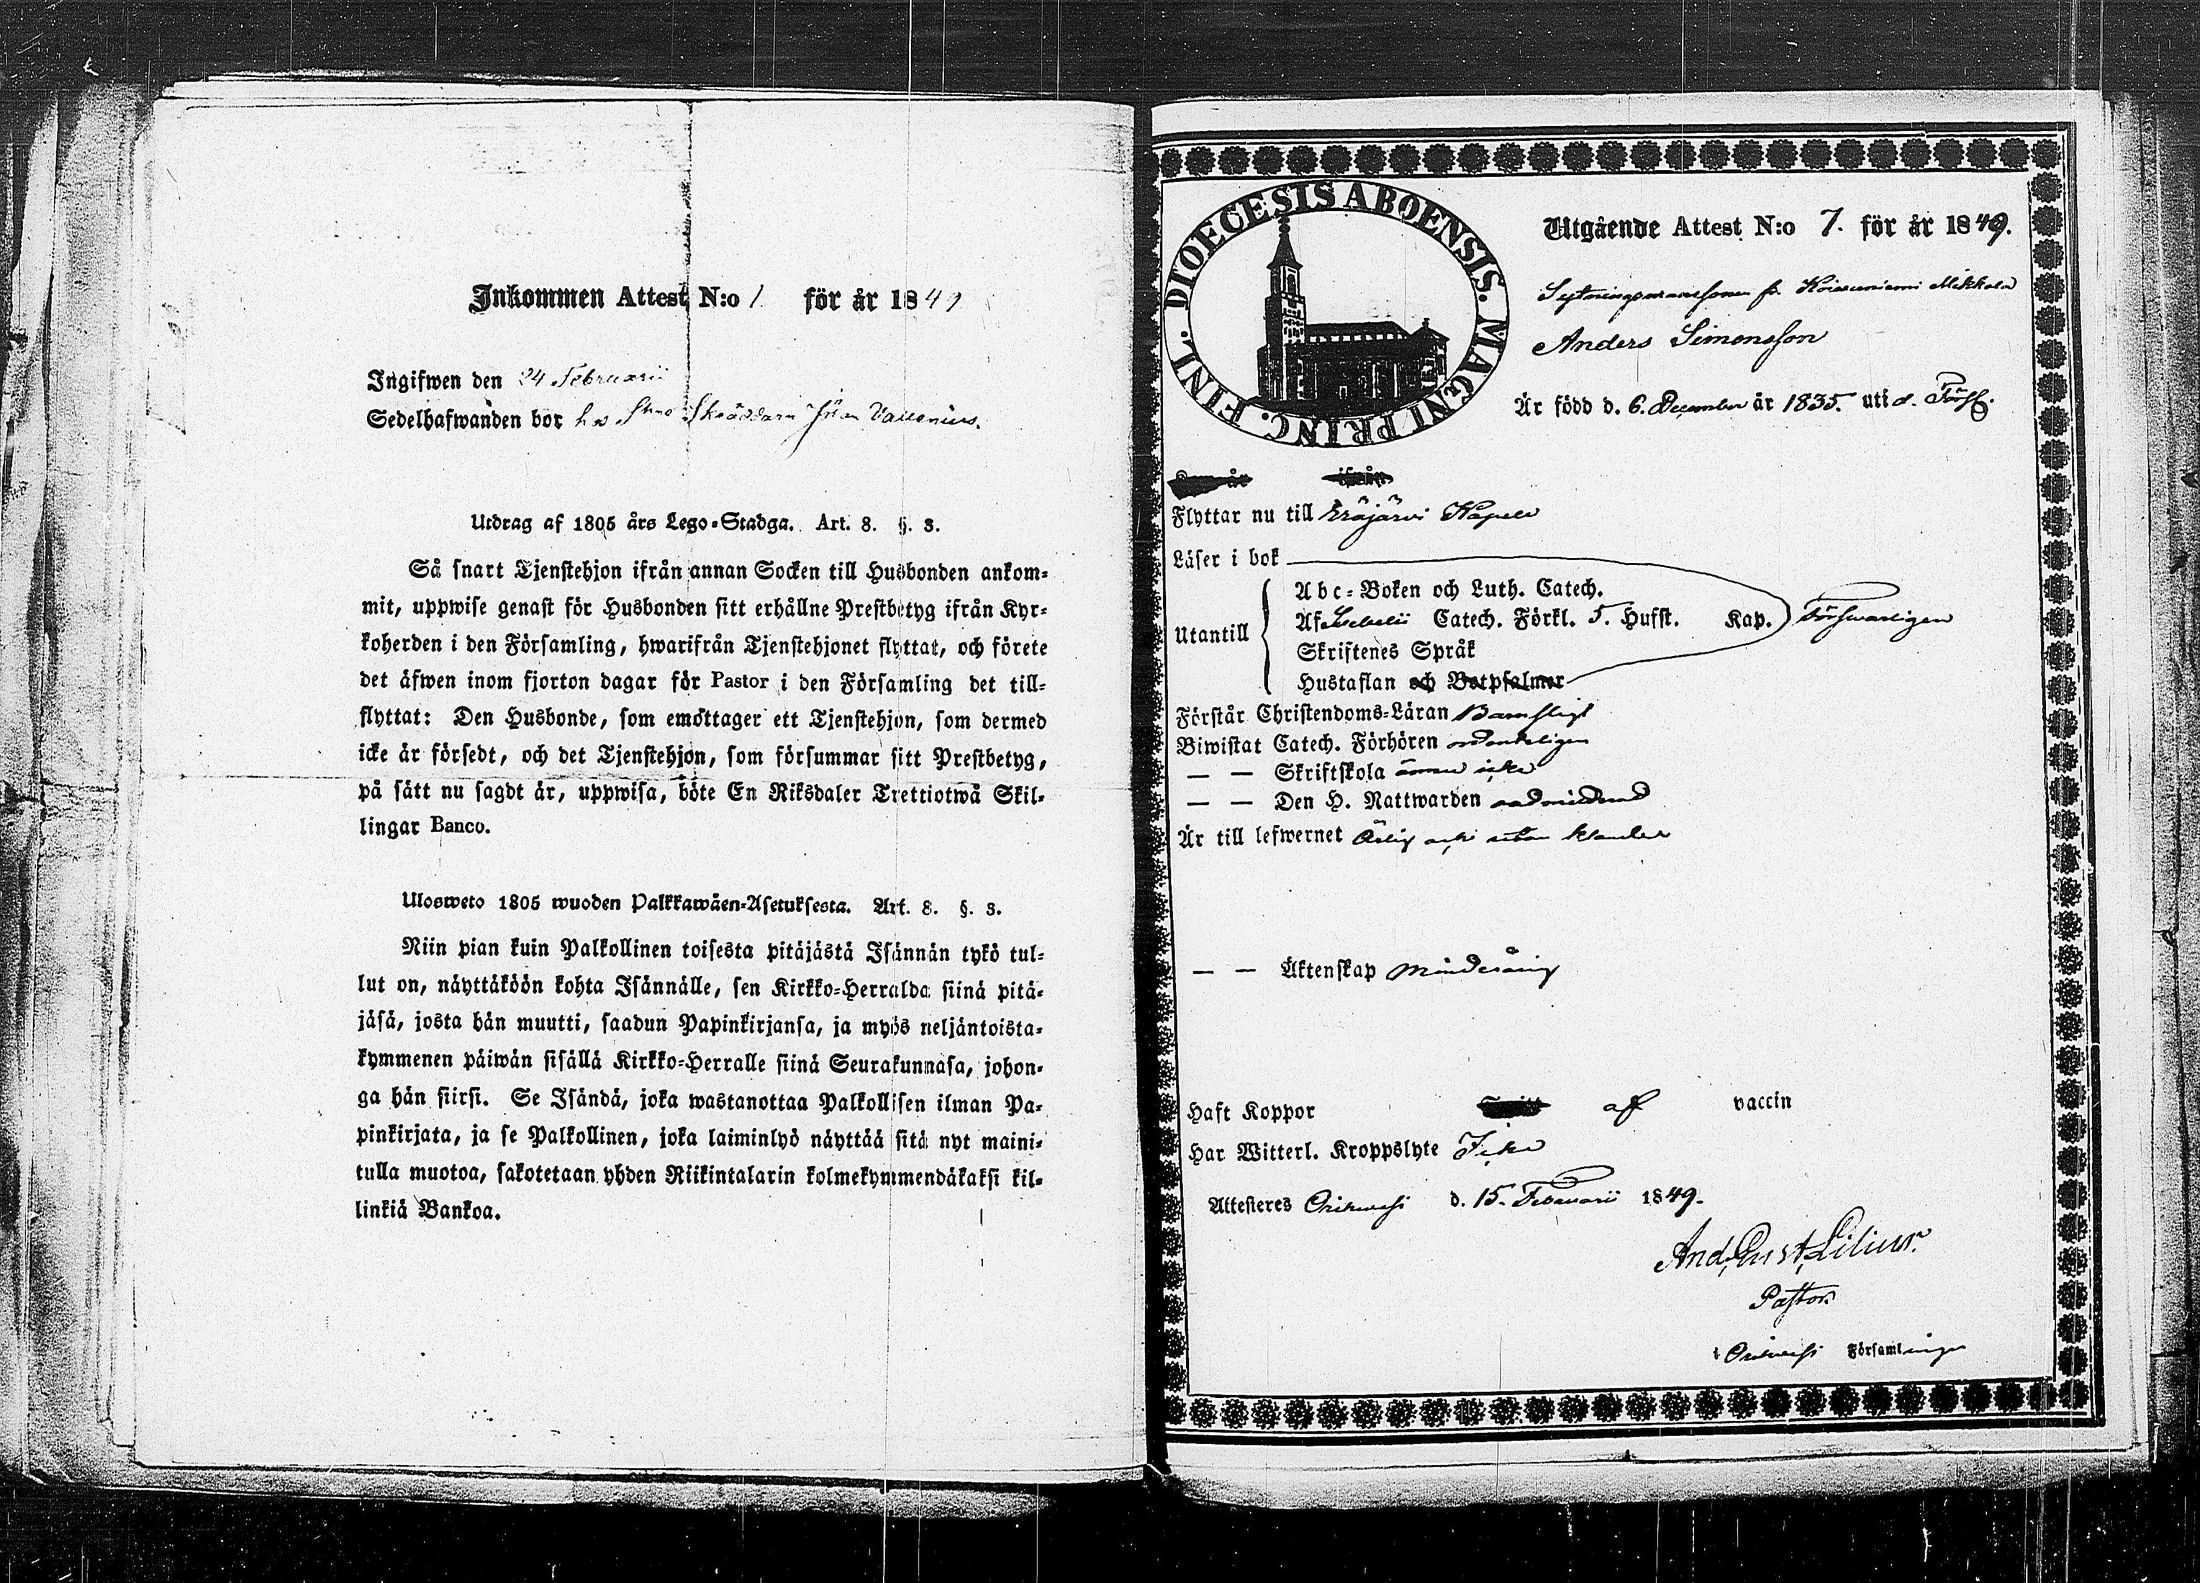 Inkommen Attest N:o 1 för år 1849
Ingifwen den 24 Februarii
Sedelhafwanden bor hos Skräddarn Johan Vallenius.
Utdrag af 1805 års Lego-Stadga. Art. 8. §. 3.
Så snart Tjenstehjon ifrån annan Socken till Husbonden ankom-
mit, uppwise genast för Husbonden sitt erhållne Prestbetyg ifrån Kyr-
koherden i den Församling, hwarifrån Tjenstehjonet flyttat, och förete
det äfwen inom fjorton dagar för Pastor i den Församling det till-
flyttat: Den Husbonde, som emottager ett Tjenstehjon, som dermed
icke är försedt, och det Tjenstehjon, som försummar sitt Prestbetyg,
på sätt nu sagdt är, uppwisa, böte En Riksdaler Trettiotwå Skil-
lingar Banco.
Ulosweto 1805 wuoden Palkkawäen-Asetuksesta. Art. 8. §. 3.
Niin pian kuin Palkollinen toisesta pitäjästä Isännän tykö tul-
lut on, näyttäköön kohta Isännälle, sen Kirkko-Herralda siinä pitä-
jäsä, josta hän muutti, saadun Papinkirjansa, ja myös neljäntoista-
kymmenen päiwän sisällä Kirkko-Herralle siinä Seurakunnasa, johon-
ga hän siirsi. Se Isändä, joka wastanottaa Palkollisen ilman Pa-
pinkirjata, ja se Palkollinen, joka laiminlyö näyttää sitä nyt maini-
tulla muotoa, sakotetaan yhden Riikintalarin kolmekymmendäkaksi kil-
linkiä Bankoa.
DIOECESIS ABOENSIS. MAGNI PRINC. FINL.
Utgående Attest N:o 7. för år 1849.
Sytningsmanssonen fr. Koivuniemi Mikkola
Anders Simonsson
Är född d. 6. December år 1835. uti d. Förs.
ifrån
Flyttar nu till Eräjärvi Kapell
Läser i bok
Utantill
Abc-Boken och Luth. Catech.
Af Svebelii Catech. Förkl. 5. Hufst. Kap. Försvarligen
Skriftenes Språk
Hustaflan och Botpsalmer
Förstår Christendoms-Läran Barnsligt
Biwistat Catech. Förhören ordentligen
— — Skriftskola ännu icke
— — Den H. Nattwarden oadmitterad
Är till lefwernet Ärlig och utan klander
— — Äktenskap minderårig
Haft Koppor af vaccin
Har Witterl. Kroppslyte Icke
Attesteres Orihvesi d. 15. Februarii 1849.
And. Gust. Lilius.
Pastor.
i Orihvesi Församlingen